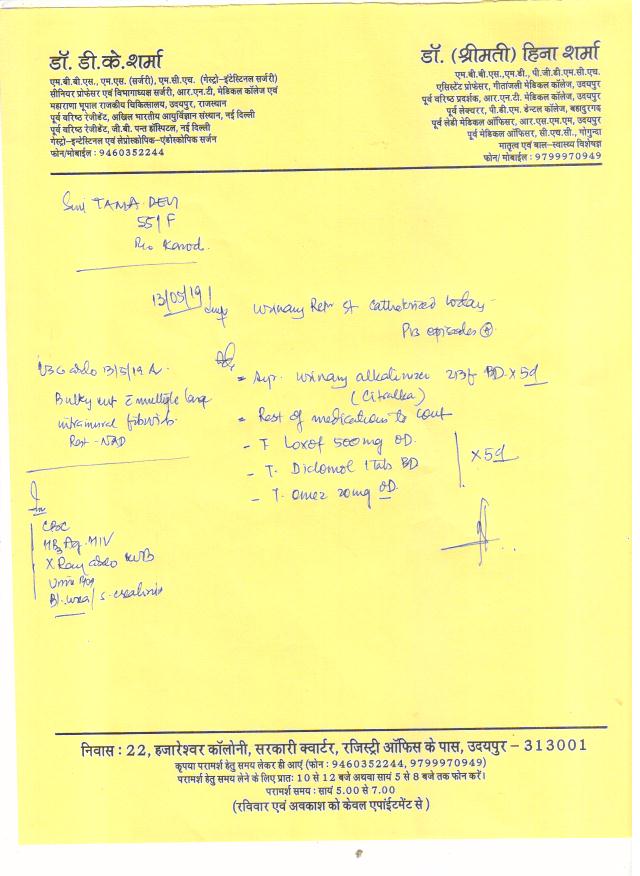 डॉ. डी.के.शर्मा
एम.बी.बी.एस., एम.एस. (सर्जरी), एम.सी.एच. (गेस्ट्रो-इंटेस्टिनल सर्जरी)
सीनियर प्रोफेसर एवं विभागाध्यक्ष सर्जरी, आर.एन.टी. मेडिकल कॉलेज एवं
महाराणा भूपाल राजकीय चिकित्सालय, उदयपुर, राजस्थान
पूर्व वरिष्ठ रेजीडेंट, अखिल भारतीय आयुर्विज्ञान संस्थान, नई दिल्ली
पूर्व वरिष्ठ रेजीडेंट, जी.बी. पन्त हॉस्पिटल, नई दिल्ली
गेस्ट्रो-इन्टेस्टिनल एवं लेप्रोस्कोपिक-एंडोस्कोपिक सर्जन
फोन/मोबाईल : 9460352244
डॉ. (श्रीमती) हिना शर्मा
एम.बी.बी.एस., एम.डी., पी.जी.डी.एम.सी.एच.
एसिस्टेंट प्रोफेसर, गीतांजली मेडिकल कॉलेज, उदयपुर
पूर्व वरिष्ठ प्रदर्शक, आर.एन.टी. मेडिकल कॉलेज, उदयपुर
पूर्व लेक्चरर, पी.डी.एम. डेन्टल कॉलेज, बहादुरगढ़
पूर्व लेडी मेडिकल ऑफिसर, आर.एस.एम.एम, उदयपुर
पूर्व मेडिकल ऑफिसर, सी.एच.सी., गोगुन्दा
मातृत्व एवं बाल-स्वास्थ्य विशेषज्ञ
फोन/ मोबाईल : 9799970949
Smt TAMA DEVI
55/F
R/o Kanod
13/05/19
urinary Retn St catheterized today
episodes
USG abdo 13/5/19
Bulky ut c multiple large
intramural fibroids
Rest - NAD
= Syp. urinary alkalinizer 2tsf BD x 5d
(Citralka)
= Rest of medications to cont
- T Loxof 500mg OD
- T. Diclomol 1 tab BD
- T. Omez 20mg OD
x 5d
CBC
HBsAg. HIV
X Ray abdo KUB
Urine
Bl. urea / s. creatinine
निवास : 22, हजारेश्वर कॉलोनी, सरकारी क्वार्टर, रजिस्ट्री ऑफिस के पास, उदयपुर – 313001
कृपया परामर्श हेतु समय लेकर ही आएं (फोन : 9460352244, 9799970949)
परामर्श हेतु समय लेने के लिए प्रातः 10 से 12 बजे अथवा सायं 5 से 8 बजे तक फोन करें।
परामर्श समय : सायं 5.00 से 7.00
(रविवार एवं अवकाश को केवल एपांईटमेंट से)